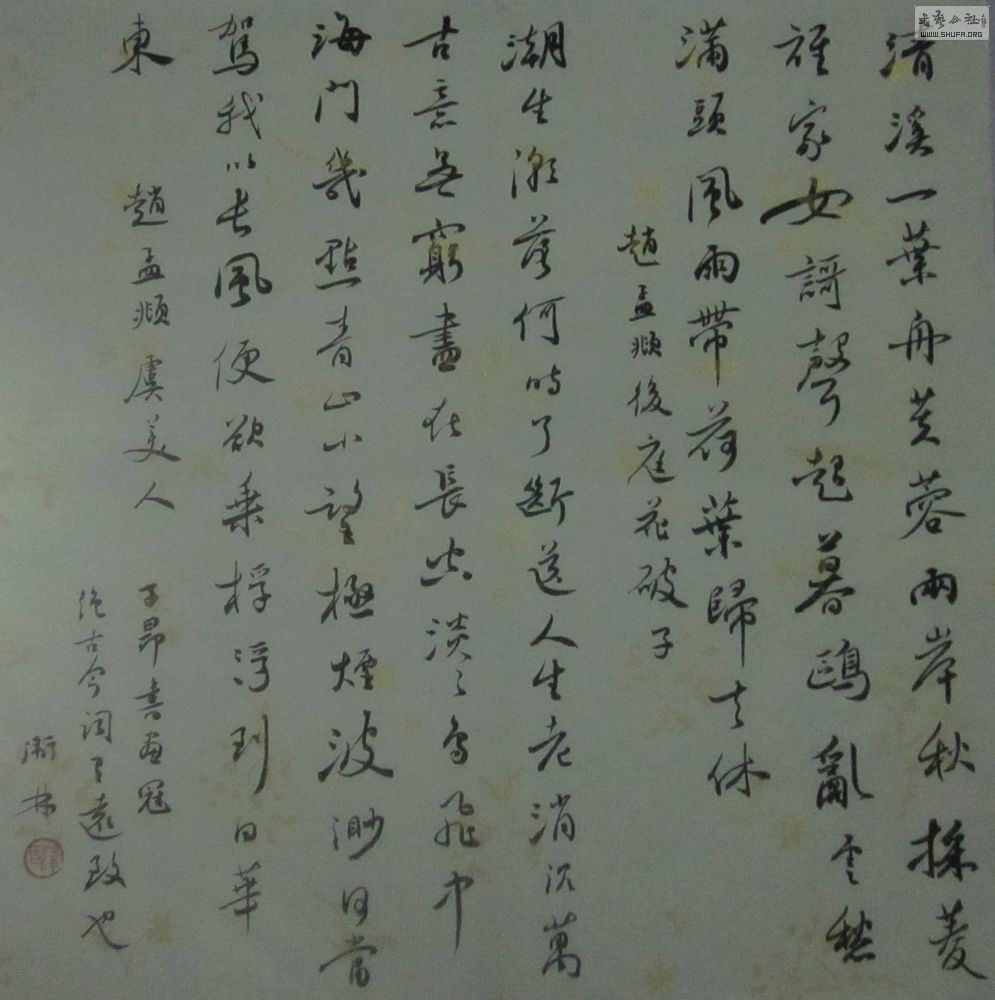 清溪一葉舟芙蓉兩岸秋採菱
誰家女謌聲起暮鷗亂雲愁
滿頭風雨帶荷葉歸去休
趙孟頫後庭花破子
潮生潮落何時了斷送人生老消沉萬
古意無窮盡在長空淡淡鳥飛中
海門幾點青山小望極煙波渺何當
駕我以長風便欲乘桴浮到日華
東
趙孟頫虞美人
子昂書畫冠
絕古今詞了遠致也
書藝公社
WWW.SHUFA.ORG